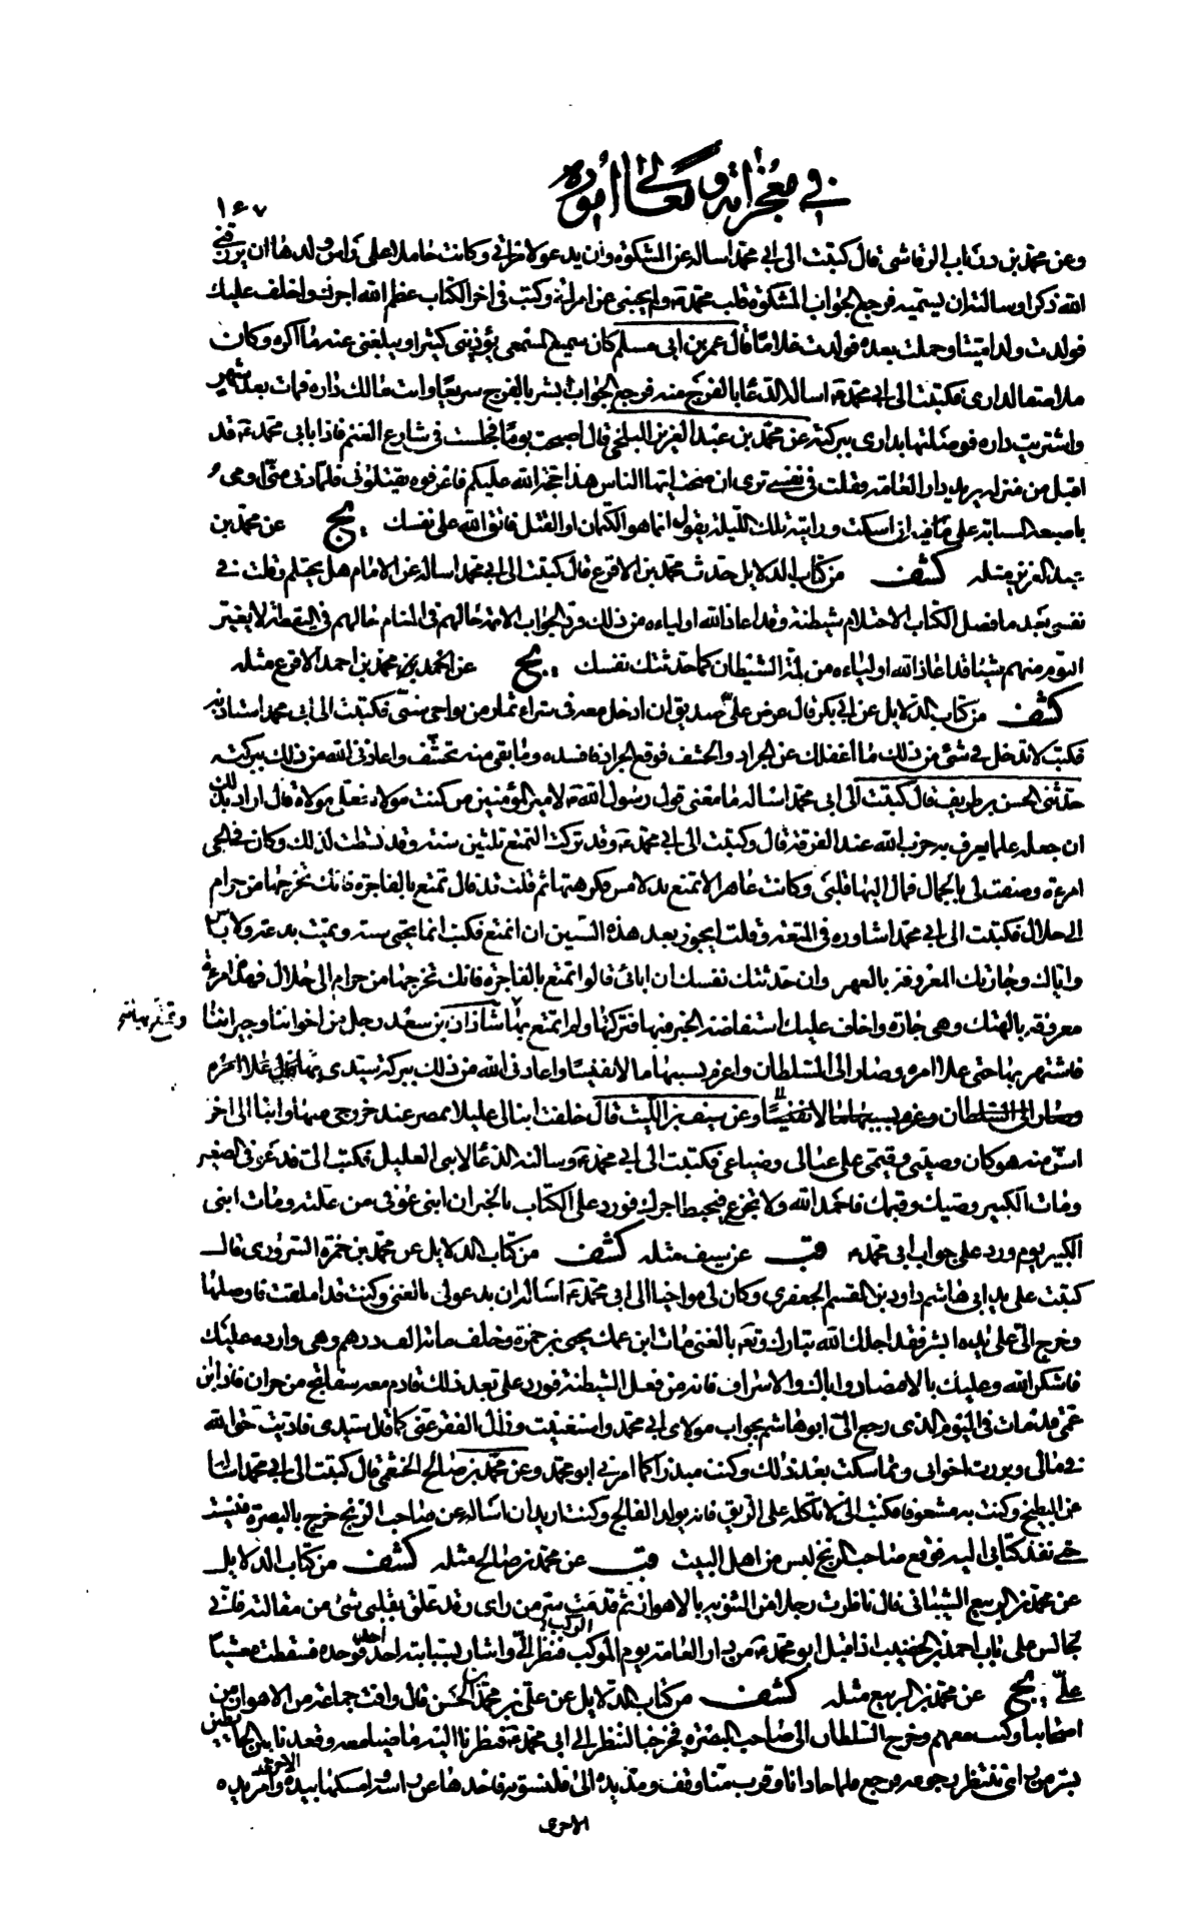 في معجزاته و معالي اموره
١٦٧
وعن محمد بن درياب الرقاشي قال كتبت الى ابي محمد اساله عن المشكوة وان يدعو لامراتي وكانت حاملا على راس ولدها ان يرزقني
الله ذكرا وسالته ان يسميه فرجع الجواب المشكوة قلب محمد ولم يجبني عن امراتي وكتب في اخر الكتاب عظم الله اجرك واخلف عليك
فولدت ولدا ميتا وحملت بعده فولدت غلاما قال عمر بن ابي مسلم كان سميع المسمعي يؤذيني كثيرا ويبلغني عنه ما اكره وكان
ملاصقا لداري فكتبت الى ابي محمد اساله الدعا بالفرج منه فرجع الجواب ابشر بالفرج سريعا وانت مالك داره فمات بعد شهر
واشتريت داره فوصلتها بداري ببركته عن محمد بن عبد العزيز البلخي قال اصبحت يوما فجلست في شارع الغنم فاذا بابي محمد قد
اقبل من منزله يريد دار العامة فقلت في نفسي ترى ان صحت ايها الناس هذا حجة الله عليكم فاعرفوه يقتلوني فلما دنى مني اومى
باصبعه السبابة على فيه ان اسكت ورايته تلك الليلة يقول انما هو الكتمان او القتل فاتق الله على نفسك يج عن محمد بن
عبد العزيز مثله كشف من كتاب الدلايل حدث محمد بن الاقرع قال كتبت الى ابي محمد اساله عن الامام هل يحتلم وقلت في
نفسي بعد ما فصل الكتاب الاحتلام شيطنة وقد اعاذ الله اولياءه من ذلك فرد الجواب الائمة حالهم في المنام حالهم في اليقظة لا يغير
النوم منهم شيئا قد اعاذ الله اولياءه من لمة الشيطان كما حدثتك نفسك يج عن احمد بن محمد بن احمد الاقرع مثله
كشف من كتاب الدلايل عن ابي بكر قال عرض علي صديق ان ادخل معه في شراء ثمار من نواحي شتى فكتبت الى ابي محمد استاذنه
فكتب لا تدخل في شئ من ذلك ما اغفلك عن الجراد والحشف فوقع الجراد فافسده وما بقى منه تحشف واعاذني الله من ذلك ببركته
حدثني الحسن بن طريف قال كتبت الى ابي محمد اساله ما معنى قول رسول الله لامير المؤمنين من كنت مولاه فعلي مولاه قال اراد بذلك
ان جعله علما يعرف به حزب الله عند الفرقة قال وكتبت الى ابي محمد وقد تركت التمتع ثلثين سنة وقد نشطت لذلك وكان في الحي
امرءة وصفت لي بالجمال فمال اليها قلبي وكانت عاهرا لا تمنع يد لامس فكرهتها ثم قلت قد قال تمتع بالفاجرة فانك تخرجها من حرام
الى حلال فكتبت الى ابي محمد اشاوره في المتعة وقلت ايجوز بعد هذه السنين ان اتمتع فكتب انما تحيي سنة وتميت بدعة ولا باس
واياك وجارتك المعروفة بالعهر وان حدثتك نفسك ان ابائي قالوا تمتع بالفاجرة فانك تخرجها من حرام الى حلال فهذه امرءة
معروفة بالهتك وهي جارة واخاف عليك استفاضة الخبر فيها فتركتها ولم اتمتع بها شاذان بن سعد رجل من اخواننا وجيراننا
وتمتع بها
فاشتهر بها حتى علا امره وصار الى السلطان واغرم بسببها مالا نفيسا واعاذني الله من ذلك ببركة سيدي
وصار الى السلطان وغرم بسببها مالا نفيسا وعن سيف بن الليث قال خلفت ابنا لي عليلا بمصر عند خروجي منها وابنا لي اخر
اسن منه هو كان وصيي وقيمي على عيالي وضياعي فكتبت الى ابي محمد وسالته الدعا لابني العليل فكتب الي قد عوفي الصغير
ومات الكبير وصيك وقيمك فاحمد الله ولا تجزع فيحبط اجرك فورد علي الكتاب بالخبر ان ابني عوفي من علته ومات ابني
الكبير يوم ورد علي جواب ابي محمد قب عن سيف مثله كشف من كتاب الدلايل عن محمد بن حمزة السروري قال
كتبت على يد ابي هاشم داود بن القسم الجعفري وكان لي مواخيا الى ابي محمد اساله ان يدعو لي بالغنى وكنت قد املقت فاوصلها
وخرج الي على يده ابشر فقد اجلك الله تبارك وتع بالغنى مات ابن عمك يحيى بن حمزة وخلف مائة الف درهم وهي واردة عليك
فاشكر الله وعليك بالاقتصاد واياك والاسراف فانه من فعل الشيطنة فورد علي بعد ذلك قادم معه سفاتج من حران فاذا ابن
عمي قد مات في اليوم الذي رجع الي ابو هاشم بجواب مولاي ابي محمد واستغنيت وزال الفقر عني كما قال سيدي فاديت حق الله
في مالي وبررت اخواني وتماسكت بعد ذلك وكنت مبذرا كما امرني ابو محمد وعن محمد بن صالح الخثعمي قال كتبت الى ابي محمد اساله
عن البطيخ وكنت به مشعوفا فكتب الي لا تاكله على الريق فانه يولد الفالج وكنت اريد ان اساله عن صاحب الزنج خرج بالبصرة فنسيت
حتى نفذ كتابي اليه فوقع صاحب الزنج ليس من اهل البيت قب عن محمد بن صالح مثله كشف من كتاب الدلايل
عن محمد بن الربيع الشيباني قال ناظرت رجلا من الثنوية بالاهواز ثم قدمت سر من راى وقد علق بقلبي شئ من مقالته فاني
لجالس على باب احمد بن الخضيب اذ اقبل ابو محمد من دار العامة يوم الموكب فنظر الي واشار بسبابته احد احد فوحده فسقطت مغشيا
علي يج عن محمد بن الربيع مثله كشف من كتاب الدلايل عن علي بن محمد بن الحسن قال وافت جماعة من الاهواز من
اصحابنا وكنت معهم وخرج السلطان الى صاحب البصرة فخرجنا النظر الى ابي محمد فنظرنا اليه ماضيا معه وقعدنا بين الحائطين
بسر من راى ننتظر رجوعه فرجع فلما حاذانا وقرب منا وقف ومد يده الى قلنسوته فاخذها عن راسه وامسكها بيده وامر يده
الاخرى